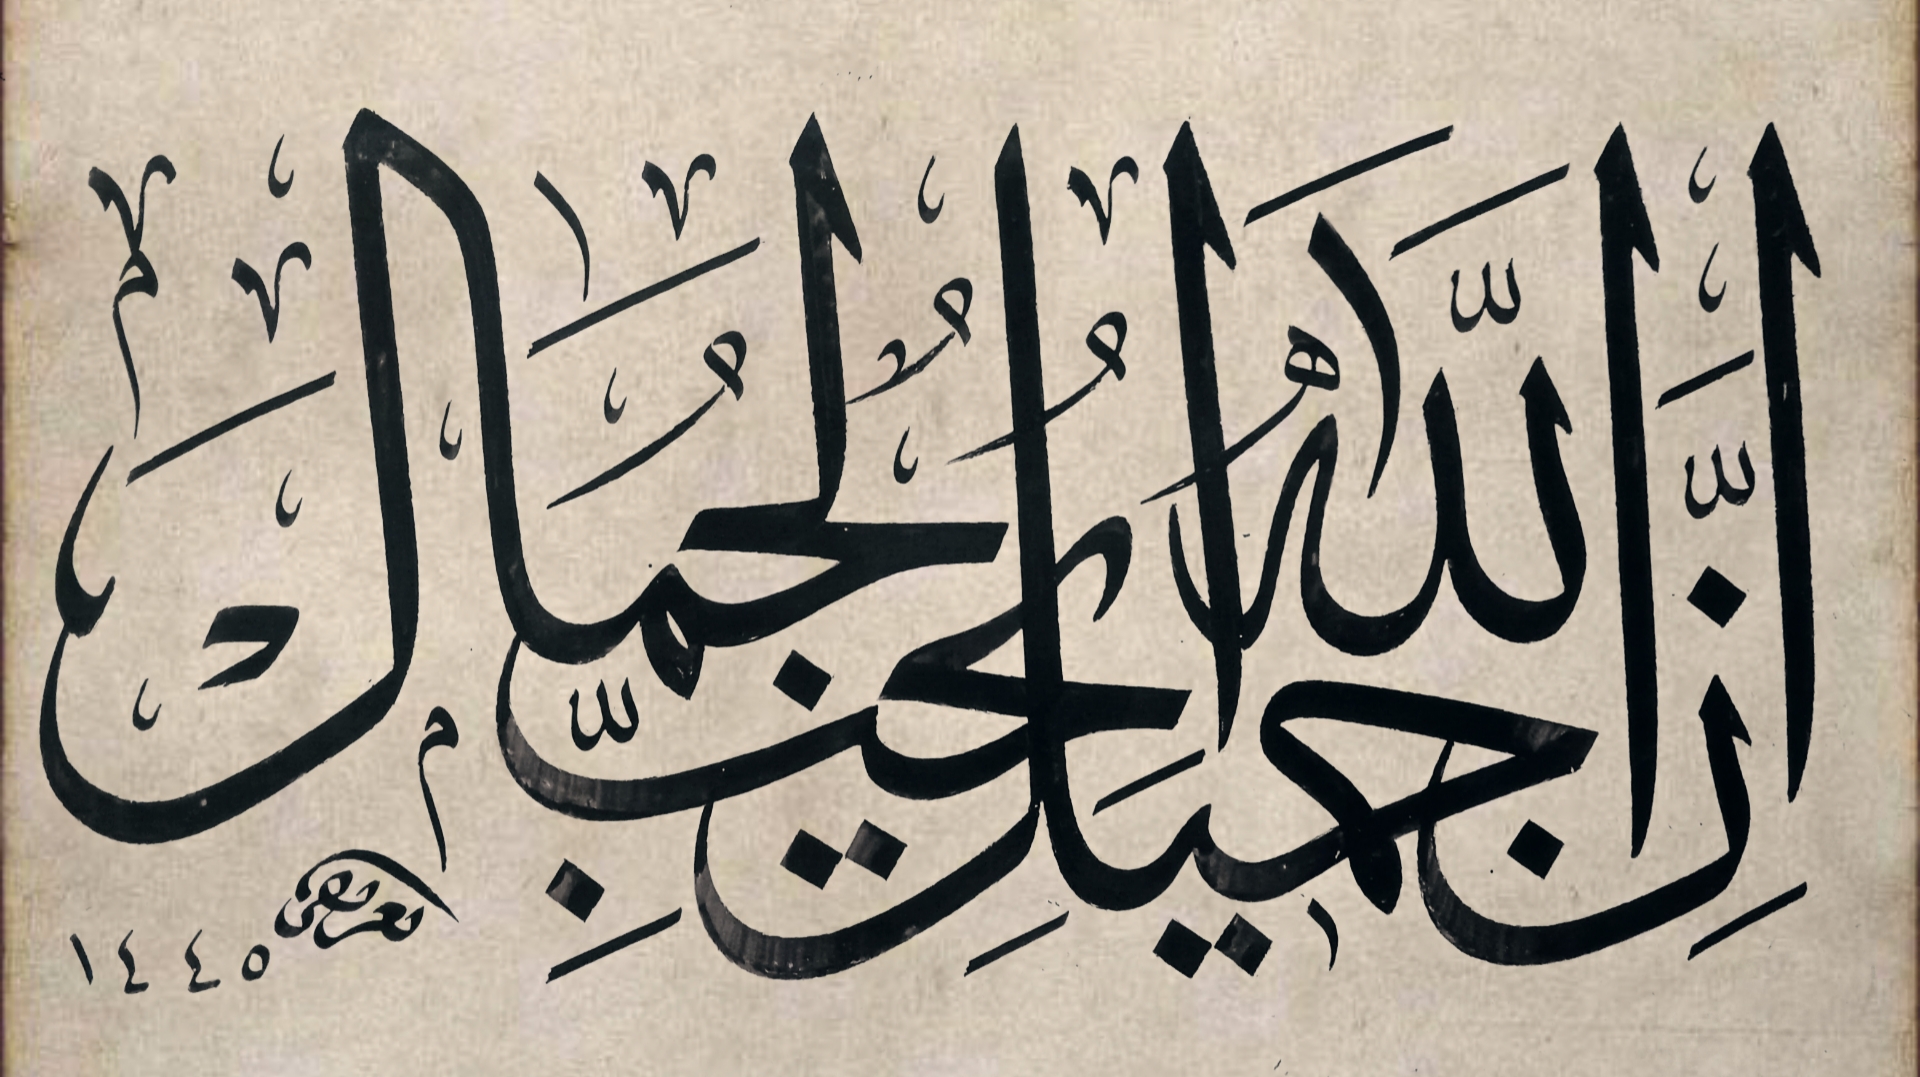 إِنَّ اللَّهَ جَمِيلٌ يُحِبُّ الْجَمَالَ
١٤٤٥